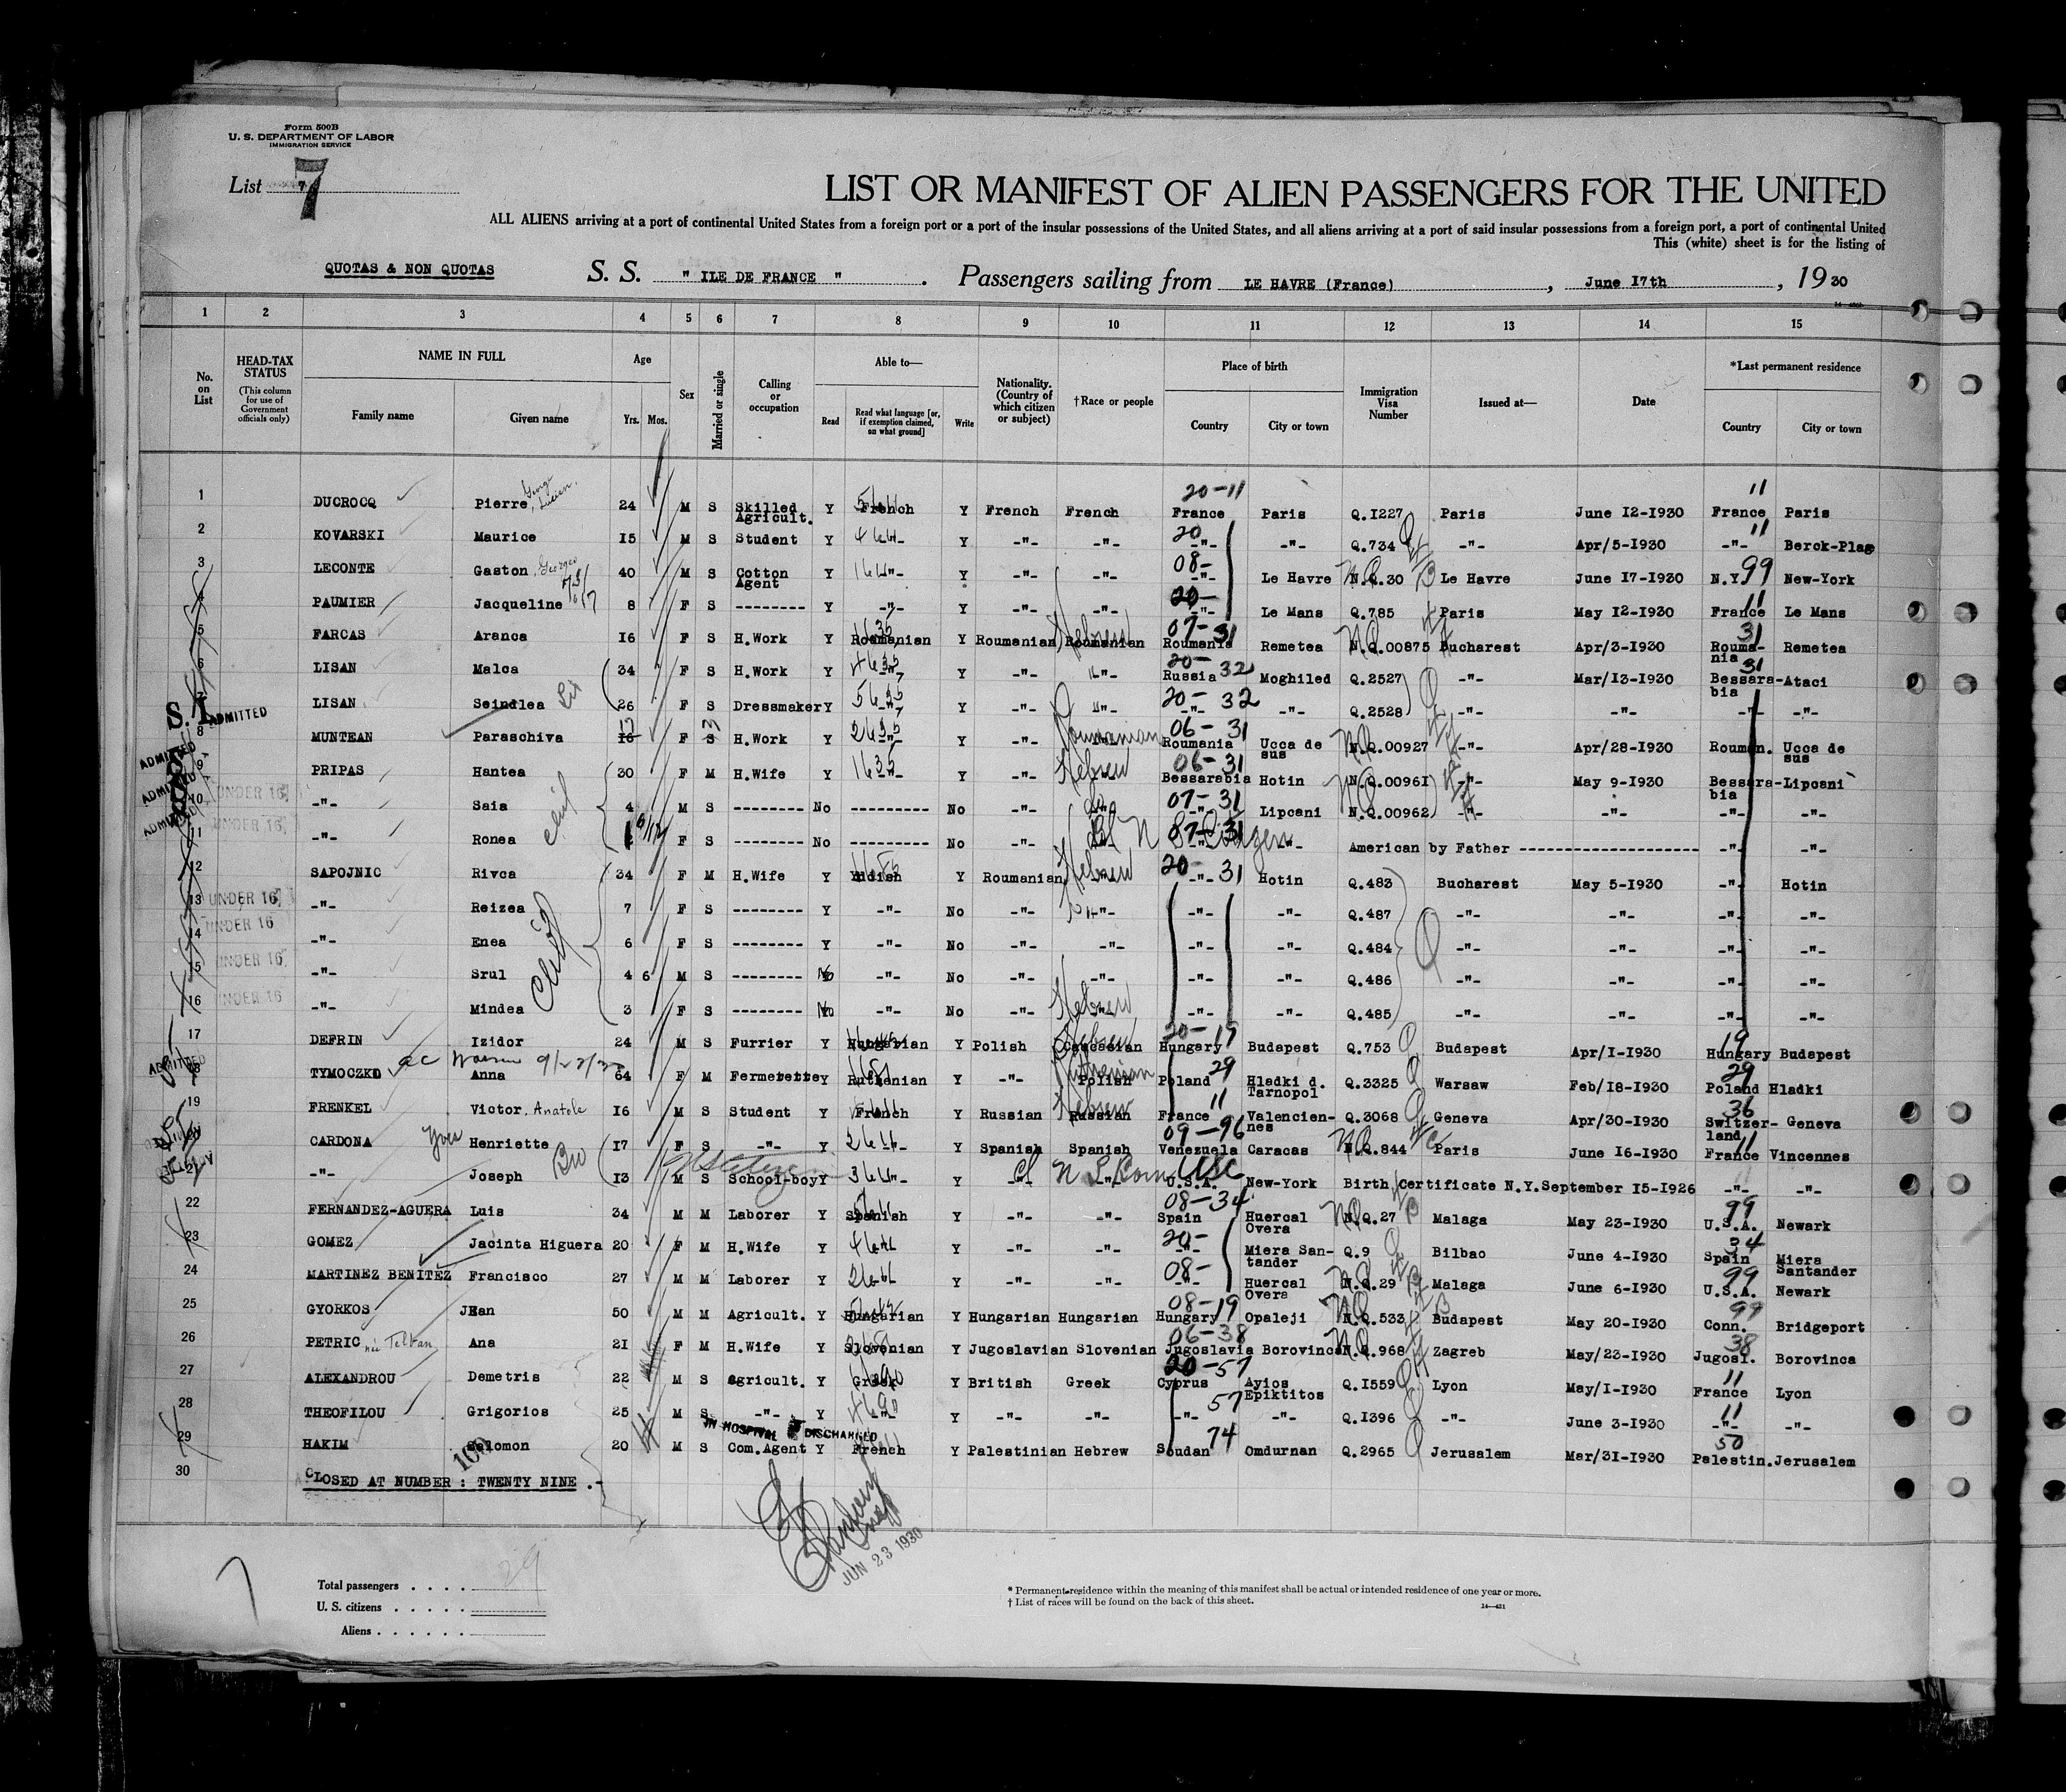 Form 500B
U. S. DEPARTMENT OF LABOR
IMMIGRATION SERVICE
List 7
LIST OR MANIFEST OF ALIEN PASSENGERS FOR THE UNITED
ALL ALIENS arriving at a port of continental United States from a foreign port or a port of the insular possessions of the United States, and all aliens arriving at a port of said insular possessions from a foreign port, a port of continental United
This (white) sheet is for the listing of
QUOTAS & NON QUOTAS S. S. " ILE DE FRANCE " . Passengers sailing from LE HAVRE (France) , June 17th , 19 30
1 2 3 4 5 6 7 8 9 10 11 12 13 14 15
No. on List
HEAD-TAX STATUS
(This column for use of Government officials only)
NAME IN FULL
Family name Given name
Age
Yrs. Mos.
Sex
Married or single
Calling or occupation
Able to—
Read Read what language [or, if exemption claimed, on what ground] Write
Nationality. (Country of which citizen or subject)
†Race or people
Place of birth
Country City or town
Immigration Visa Number
Issued at—
Date
*Last permanent residence
Country City or town
1 DUCROCQ Pierre 24 M S Skilled Agricult. Y French Y French French 20-11 France Paris Q.1227 Paris June 12-1930 11 France Paris
2 KOVARSKI Maurice 15 M S Student Y -"- Y -"- -"- 20 -"- -"- Q.734 -"- Apr/5-1930 11 -"- Berck-Plage
3 LECONTE Gaston Georges 40 M S Cotton Agent Y -"- Y -"- -"- 08- -"- Le Havre N.Q.30 Le Havre June 17-1930 N.Y. 99 New-York
4 PAUMIER Jacqueline 8 F S -------- Y -"- Y -"- -"- 20- -"- Le Mans Q.785 Paris May 12-1930 11 France Le Mans
5 FARCAS Aranca 16 F S H.Work Y Roumanian Y Roumanian Roumanian Hebrew 07-31 Roumania Remetea N.Q.00875 Bucharest Apr/3-1930 31 Roumania Remetea
6 LISAN Malca 34 F S H.Work Y -"- Y -"- -"- 20-32 Russia Moghiled Q.2527 -"- Mar/13-1930 31 Bessarabia Ataci
7 LISAN Seindlea 26 F S Dressmaker Y -"- Y -"- -"- 20-32 -"- -"- Q.2528 -"- -"- -"- -"-
S. I. ADMITTED
8 MUNTEAN Paraschiva 17 16 F S H.Work Y -"- Y -"- Roumanian 06-31 Roumania Ucca de sus N.Q.00927 -"- Apr/28-1930 Rouman. Ucca de sus
ADMITTED
9 PRIPAS Hantea 30 F M H.Wife Y -"- Y -"- Hebrew 06-31 Bessarabia Hotin N.Q.00961 -"- May 9-1930 Bessarabia Lipcani
ADMITTED
10 UNDER 16 -"- Saia 4 M S -------- No --------- No -"- -"- 07-31 Lipcani N.Q.00962 -"- -"- -"- -"-
ADMITTED
11 UNDER 16 -"- Ronea F S -------- No --------- No -"- -"- -"- American by Father -------------------- -"- -"-
12 SAPOJNIC Rivca 34 F M H.Wife Y Yidish Y Roumanian Hebrew 20-31 -"- Hotin Q.483 Bucharest May 5-1930 -"- Hotin
13 UNDER 16 -"- Reizea 7 F S -------- Y -"- No -"- -"- -"- -"- Q.487 -"- -"- -"- -"-
14 UNDER 16 -"- Enea 6 F S -------- Y -"- No -"- -"- -"- -"- Q.484 -"- -"- -"- -"-
15 UNDER 16 -"- Srul 4 6 M S -------- No -"- No -"- -"- -"- -"- Q.486 -"- -"- -"- -"-
16 UNDER 16 -"- Mindea 3 F S -------- No -"- No -"- Hebrew -"- -"- Q.485 -"- -"- -"- -"-
17 DEFRIN Izidor 24 M S Furrier Y Hungarian Y Polish Caucasian Hebrew 20-19 Hungary Budapest Q.753 Budapest Apr/1-1930 19 Hungary Budapest
ADMITTED
18 TYMOCZKO Anna 64 F M Fermerette Y Ruthenian Y -"- Polish Ruthenian 29 Poland Hladki d. Tarnopol Q.3325 Warsaw Feb/18-1930 29 Poland Hladki
19 FRENKEL Victor, Anatole 16 M S Student Y French Y Russian Russian Hebrew 11 France Valenciennes Q.3068 Geneva Apr/30-1930 36 Switzerland Geneva
20 CARDONA Yves Henriette 17 F S -"- Y -"- Y Spanish Spanish 09-96 Venezuela Caracas N.Q.844 Paris June 16-1930 11 France Vincennes
21 -"- Joseph 13 M S School-boy Y -"- Y -"- -"- U.S.A. USC New-York Birth Certificate N.Y.September 15-1926 -"- -"-
22 FERNANDEZ-AGUERA Luis 34 M M Laborer Y Spanish Y -"- -"- 08-34 Spain Huercal Overa N.Q.27 Malaga May 23-1930 99 U.S.A. Newark
23 GOMEZ Jacinta Higuera 20 F M H.Wife Y -"- Y -"- -"- 20- -"- Miera Santander Q.9 Bilbao June 4-1930 34 Spain Miera Santander
24 MARTINEZ BENITEZ Francisco 27 M M Laborer Y -"- Y -"- -"- 08- -"- Huercal Overa N.Q.29 Malaga June 6-1930 99 U.S.A. Newark
25 GYORKOS Jean 50 M M Agricult. Y Hungarian Y Hungarian Hungarian 08-19 Hungary Opaleji N.Q.533 Budapest May 20-1930 99 Conn. Bridgeport
26 PETRIC Ana 21 F M H.Wife Y Slovenian Y Jugoslavian Slovenian 06-38 Jugoslavia Borovinca N.Q.968 Zagreb May/23-1930 38 Jugosl. Borovinca
27 ALEXANDROU Demetris 22 M S Agricult. Y Greek Y British Greek 20-57 Cyprus Ayios Epiktitos Q.1559 Lyon May/1-1930 11 France Lyon
28 THEOFILOU Grigorios 25 M S -"- Y -"- Y -"- -"- 57 -"- -"- Q.1396 -"- June 3-1930 11 -"- -"-
IN HOSPITAL DISCHARGED
29 HAKIM Salomon 20 M S Com.Agent Y French Y Palestinian Hebrew 74 Soudan Omdurnan Q.2965 Jerusalem Mar/31-1930 50 Palestin. Jerusalem
30 CLOSED AT NUMBER : TWENTY NINE .-
100
JUN 23 1930
7
Total passengers . . . . 29
U. S. citizens . . . . .
Aliens . . . . . .
* Permanent residence within the meaning of this manifest shall be actual or intended residence of one year or more.
† List of races will be found on the back of this sheet.
14—431